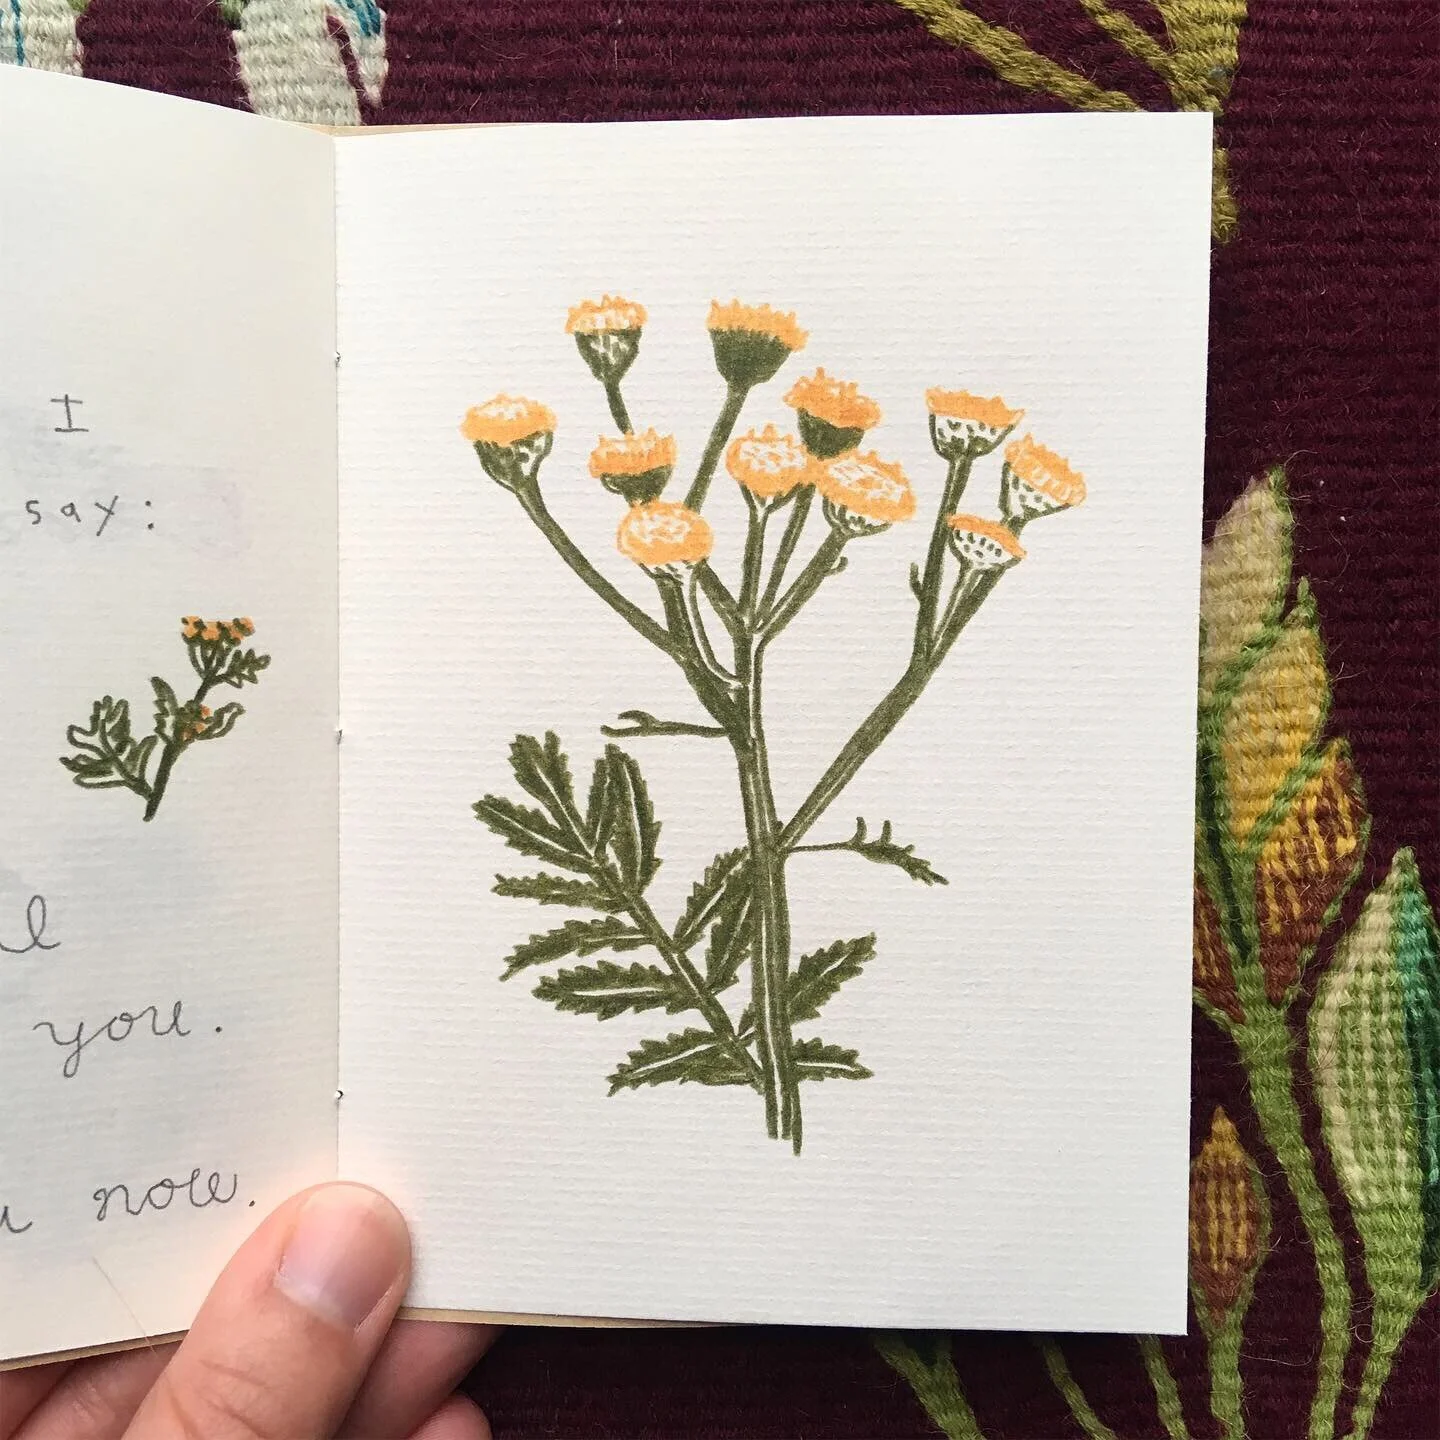 I
say:
you.
now.